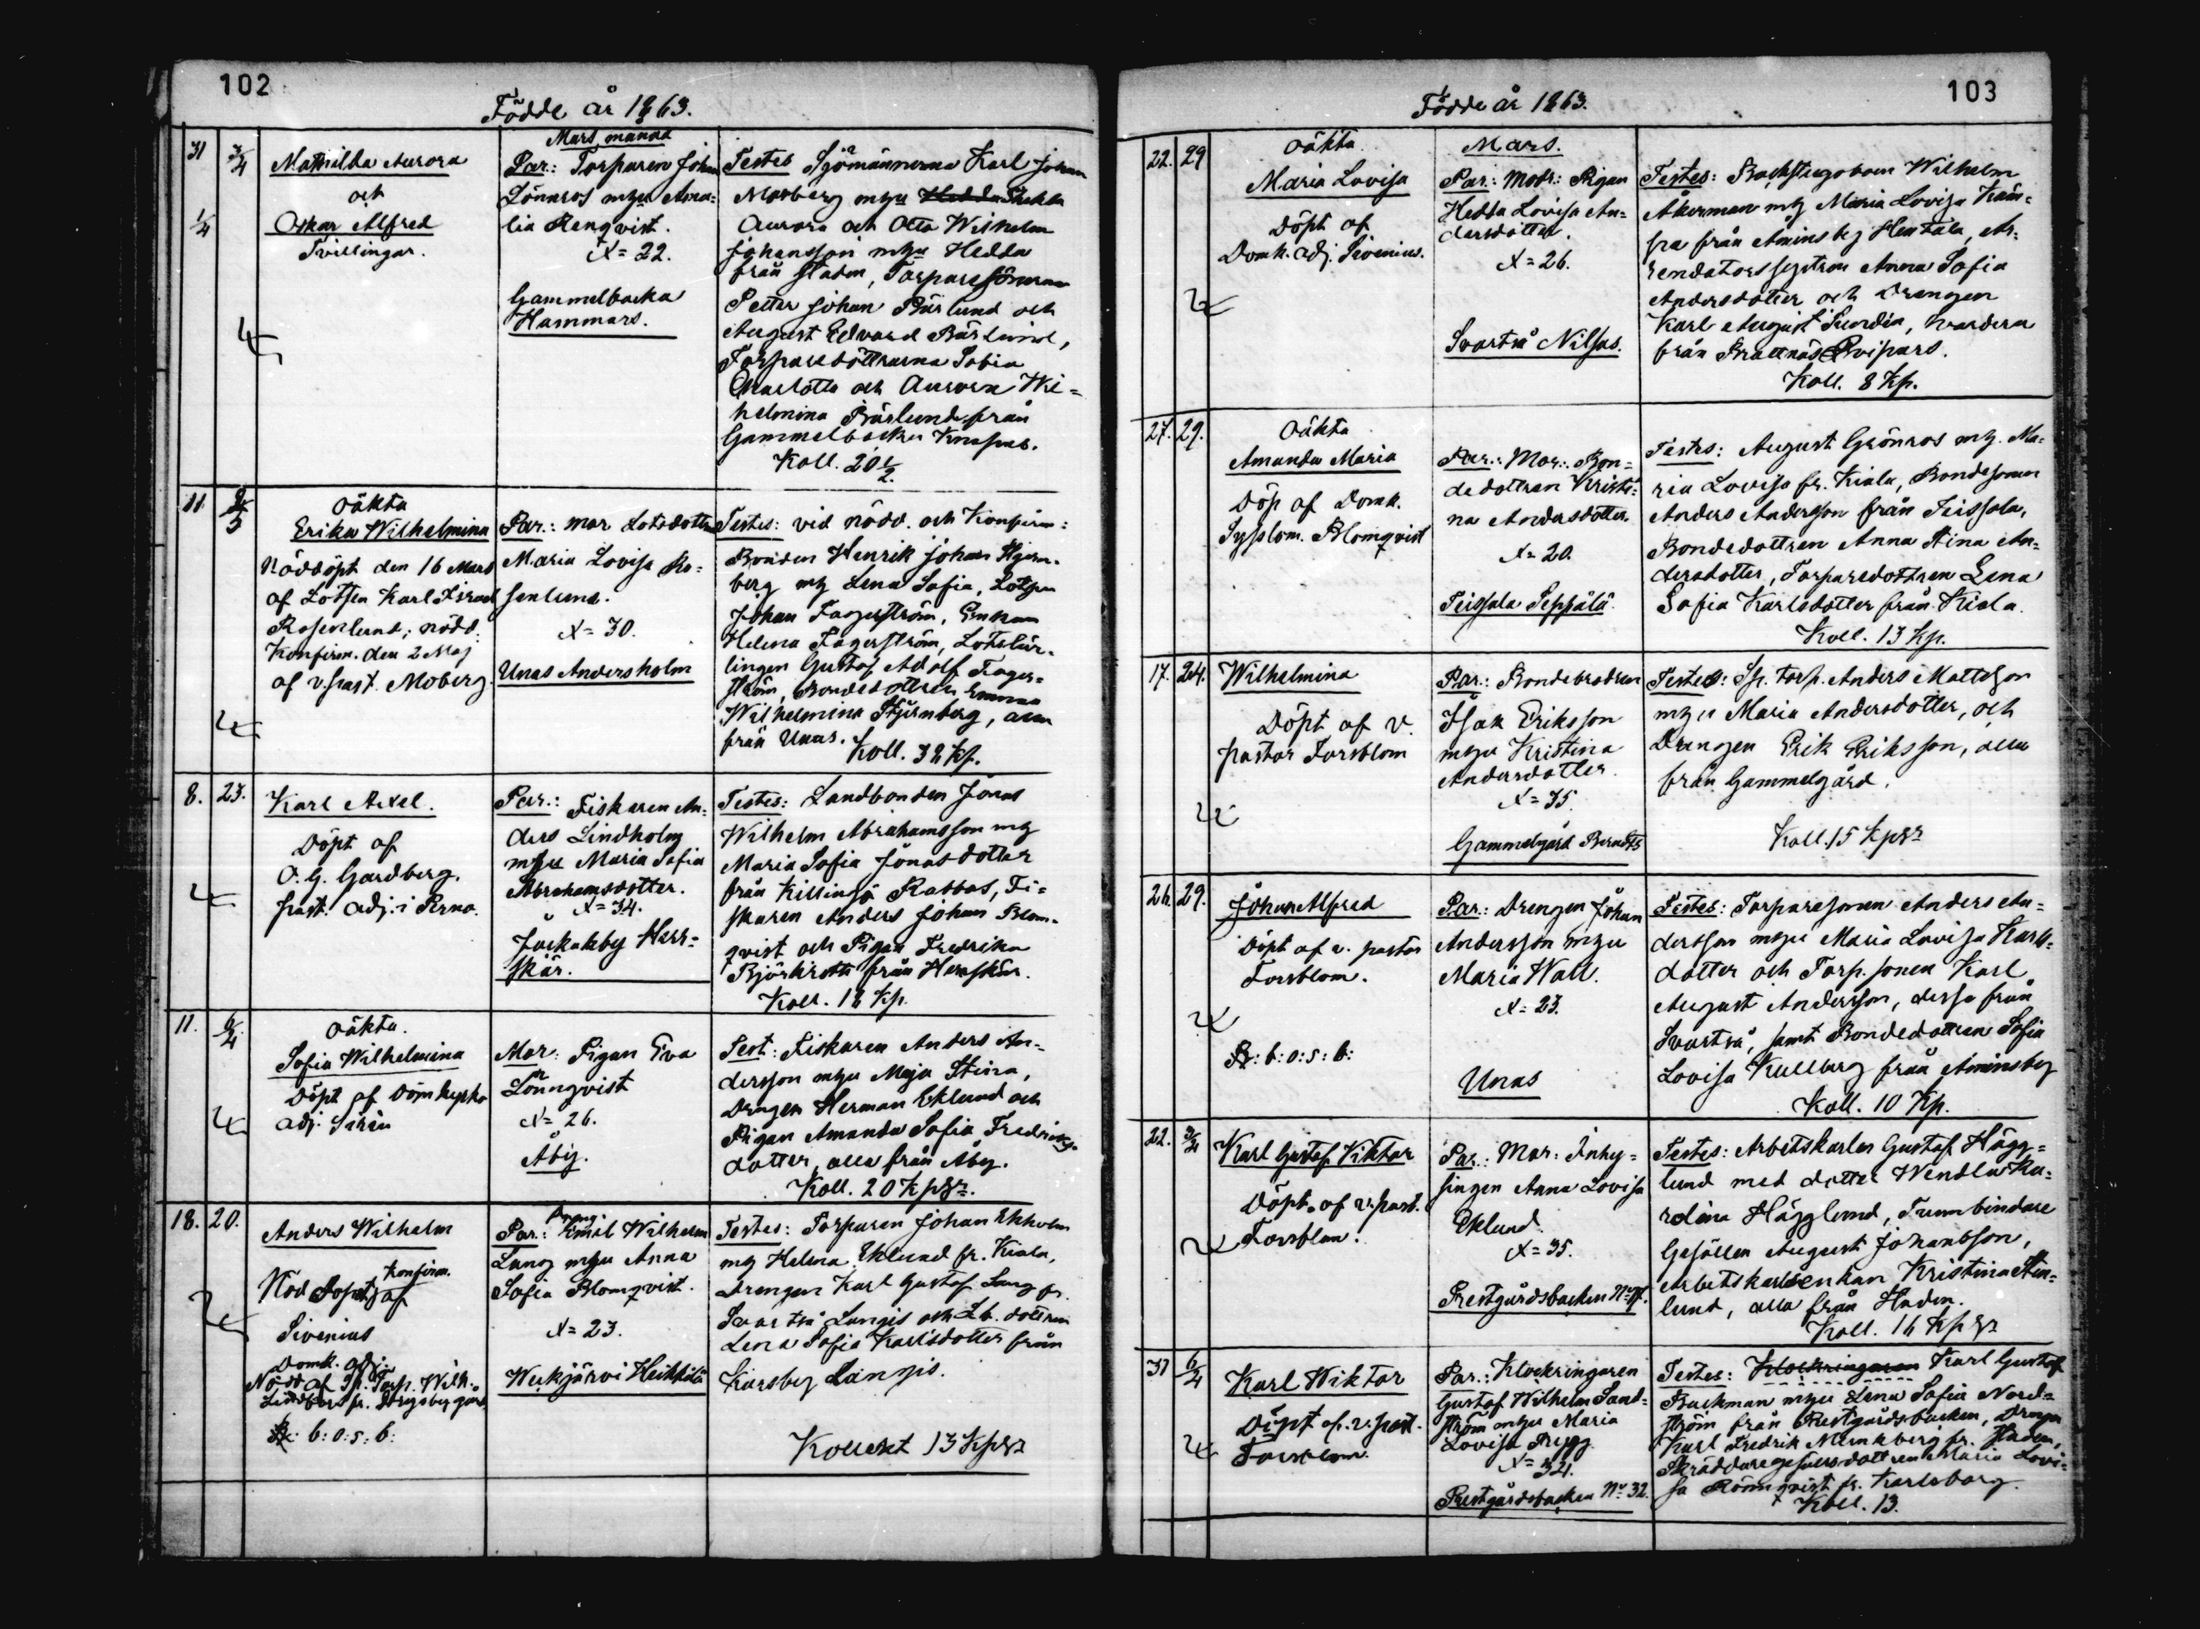 102
Födde år 1863.
Mars månad
31
3/4
1/4
Mathilda Aurora
och
Oskar Alfred
Tvillingar.
Par.: Torparen Johan
Lönnros m hu Ama=
lia Renqvist.
N= 22.
Gammelbacka
Hammars.
Testes Sjömännerna Karl Johan
Morberg m hu Hedda Thekla
Aurora och Otto Wilhelm
Johansson m hu Hedda
från staden, Torparesönerna
Petter Johan Bärlund och
August Edvard Bärlund,
Torparedöttrarna Sofia
Charlotta och Aurora Wil=
helmina Bärlund från
Gammelbacka Knapas.
Koll. 20 1/2.
11
2/5
oäkta
Erika Wilhelmina
Nöddöpt den 16 Mars
af Lotsen Karl Israel
Rosenlund; nödd.
Konfirm. den 2 Maj
af v. past. Moberg.
Par.: mor Lotsdottr
Maria Lovisa Ro=
senlund.
N= 30.
Unas Andersholm
Testes: vid nödd. och Konfirm:
Bonden Henrik Johan Stjern-
berg m h Lena Sofia, Lotsen
Johan Fagerström, Enkan
Helena Fagerström, Lotslär-
lingen Gustaf Adolf Fager=
ström, Bondedottren Emma
Wilhelmina Stjernberg, alla
från Unas.
Koll. 32 Kp.
8.
23.
Karl Axel.
Döpt af
O. G. Gardberg.
past. adj. i Perno.
Par.: Fiskaren An-
ders Lindholm
m hu Maria Sofia
Abrahamsdotter.
N= 34.
Jackarby Herr=
skär.
Testes: Landbonden Jonas
Wilhelm Abrahamsson m h
Maria Sofia Jonasdotter
från Killingö Rabbas, Fi=
skaren Anders Johan Blom-
qvist och Pigan Fredrika
från Herrskär.
Koll. 12 Kp.
11.
6/4
oäkta.
Sofia Wilhelmina
Döpt af Domkyrko
adj.
Mor: Pigan Eva
Lönnqvist
N= 26.
Åby.
Test: Fiskaren Anders An-
dersson m hu Maja Stina,
Drengen Herman Eklund och
Pigan Amanda Sofia Fredriks-
dotter, alla från Åby.
Koll. 20 Kpgr.
18.
20.
Anders Wilhelm
Konfirm.
Nöd Döpt af
Sirenius
Domk. adj.
Nödd. af Sp. Torp. Wilh.
Lindfors fr.
Br: b: o: s: b:
Dreng.
Par: Emil Wilhelm
Lang m hu Anna
Sofia Blomqvist.
N= 23.
Wekjärvi Heikkilä
Testes: Torparen Johan Ekholm
m h Helena Eklund fr. Kiala,
Drengen Karl Gustaf Lang fr.
Svartså Langis och Lb. dottren
Lena Sofia Karlsdotter från
Karsby Langis.
Kollekt 13 Kpgr
103
Födde år 1863.
Mars.
22.
29
oäkta.
Maria Lovisa
Döpt af
Domk. adj. Sirenius.
Par: Modr: Pigan
Hedda Lovisa An-
dersdotter.
N= 26.
Svartså Nilsas.
Testes: Backstugoboen Wilhelm
Åkerman m h Maria Lovisa
från Aminsby Hentala, Ar-
rendatorssystren Anna Sofia
Andersdotter och Drengen
Karl August Sundin, hvardera
från
Koll. 8 Kp.
27.
29.
oäkta
Amanda Maria
Döp af Domk.
Sysslom. Blomqvist
Par.: Mor.: Bon-
dedottren Kristi=
na Andersdotter.
N= 20.
Teissala Seppälä.
Testes: August Grönros m h. Ma-
ria Lovisa fr. Kiala, Bondesonen
Anders Andersson från Teissala,
Bondedottren Anna Stina An-
dersdotter, Torparedottren Lena
Sofia Karlsdotter från Kiala.
Koll. 13 Kp.
17.
24.
Wilhelmina
Döpt af v.
pastor Forsblom
Par.: Bondebrodren
Isak Eriksson
m hu Kristina
Andersdotter.
N= 35.
Gammelgård Berndts
Testes: Sp. torp. Anders Mattsson
m hu Maria Andersdotter, och
Drengen Erik Eriksson, alla
från Gammelgård.
Koll. 15 Kpgr
26.
29.
Johan Alfred
Döpt af v. pastor
Forsblom.
Br: b: o: s: b:
Par: Drengen Johan
Andersson m hu
Maria Wall.
N= 23.
Unas
Testes: Torparesonen Anders An-
dersson m hu Maria Lovisa Karls-
dotter och Torp. sonen Karl
August Andersson, dessa från
Svartså, samt Bondedottren Sofia
Lovisa Kullberg från Aminsby
Koll. 10 Kp.
22.
3/4
Karl Gustaf Viktor
Döpt. af v. past.
Forsblom.
Par.: Mor: Inhy=
singen Anna Lovisa
Eklund.
N= 35.
Prestgårdsbacken No
Testes: Arbetskarlen Gustaf Hägg=
lund med dotter Wendla Ka-
rolina Hägglund, Tunnbindare
Gesällen August Johansson,
Arbetskarlsenkan Kristina Sten-
lund, alla från Staden.
Koll. 16 Kpgr
31
6/4
Karl Wiktor
Döpt af. v. past.
Forsblom.
Par.: Klockringaren
Gustaf Wilhelm Sand-
ström m hu Maria
Lovisa Frigg
N= 34.
Prestgårdsbacken No 32.
Testes: Klockringaren Karl Gustaf
Backman m hu Lena Sofia Nord-
ström från Prestgårdsbacken, Drengen
Karl Fredrik Munkberg fr. Staden,
Skräddaregesällsdottren Maria Lovi-
sa Rönnqvist fr. Karlsborg.
Koll. 13.